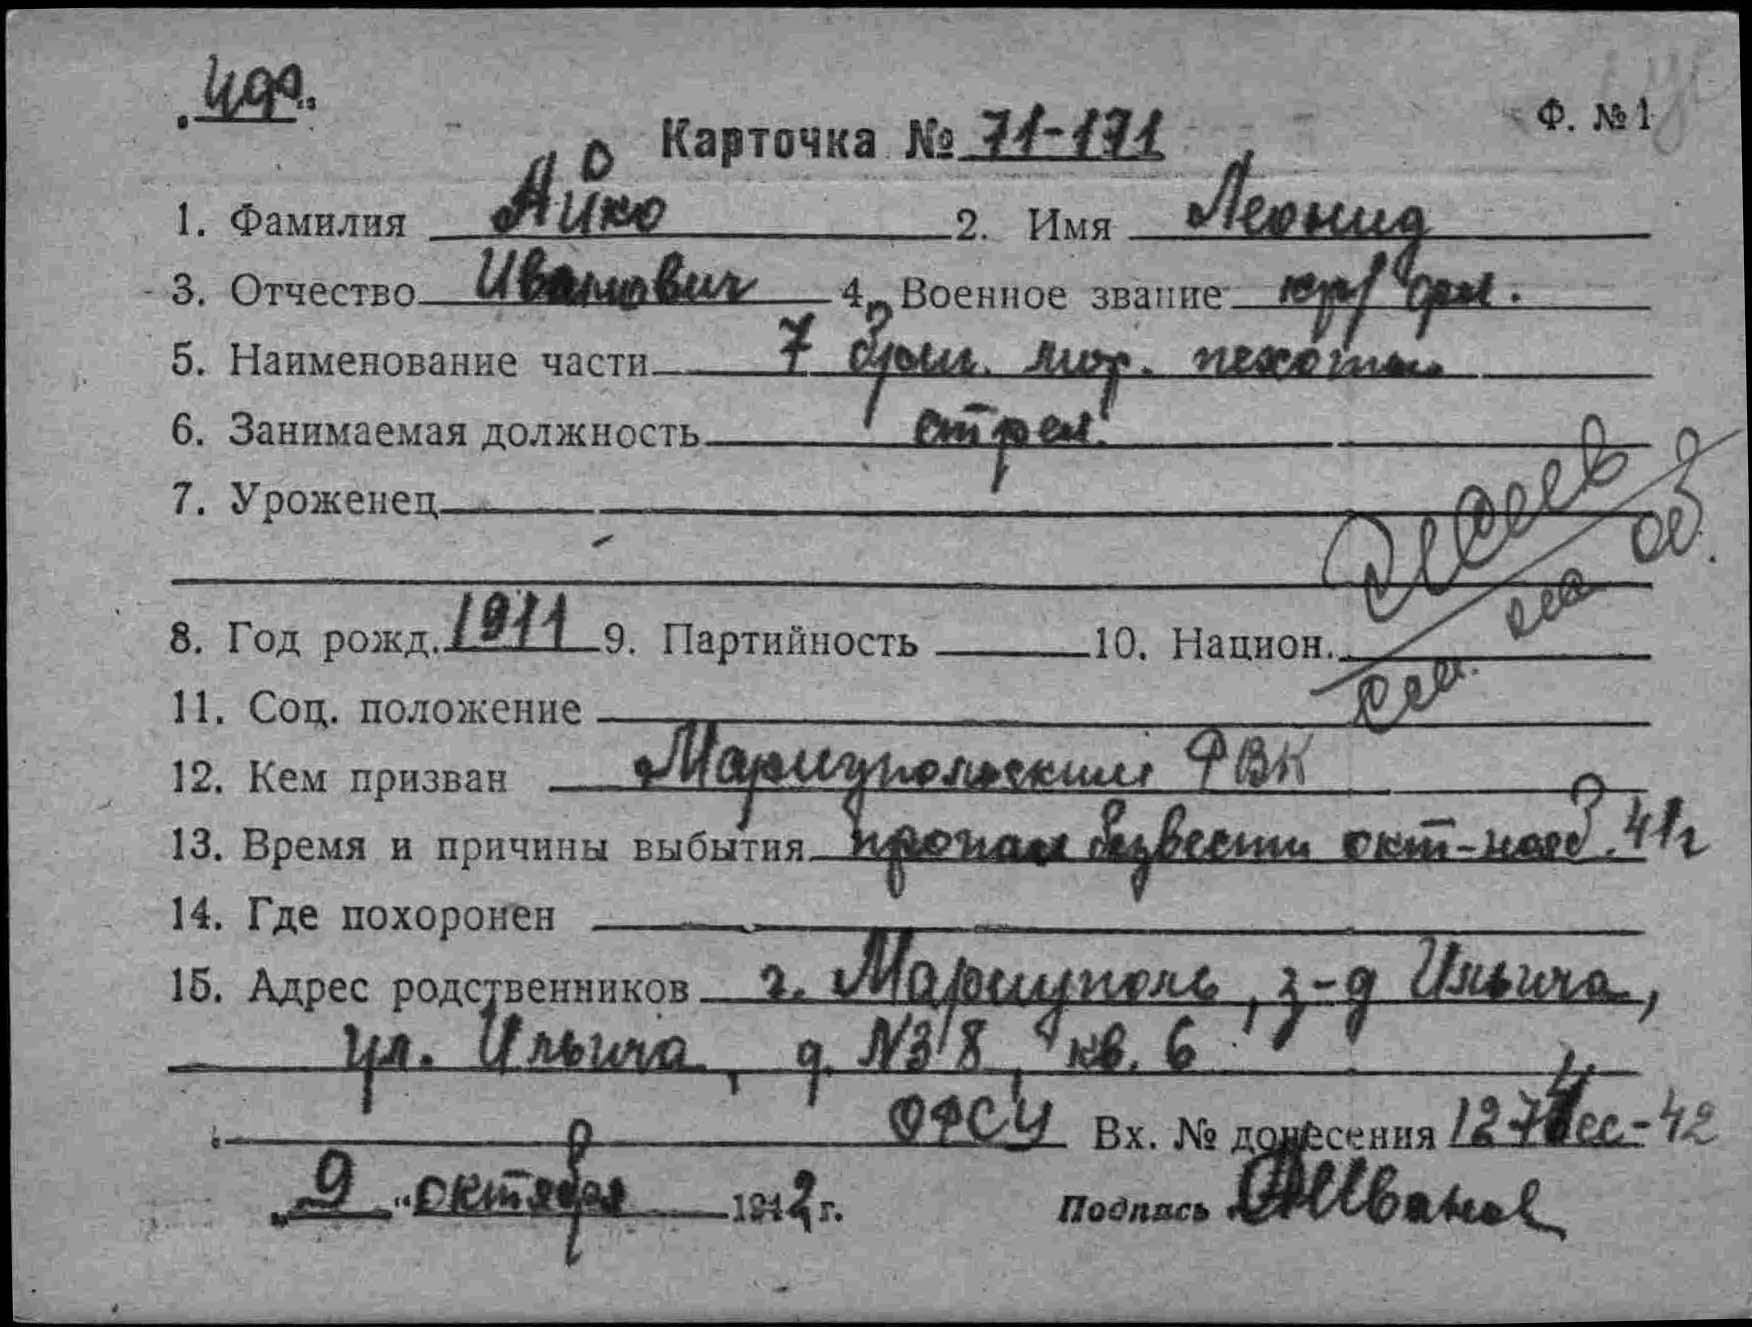 Ф. № 1
Карточка № 71-171
1. Фамилия Айко 2. Имя Леонид
3. Отчество Иванович 4. Военное звание кр/фл.
5. Наименование части 7 бриг. мор. пехоты
6. Занимаемая должность стрел.
7. Уроженец
8. Год рожд. 1911 9. Партийность 10. Национ.
11. Соц. положение
12. Кем призван Мариупольский РВК
13. Время и причины выбытия пропал безвести окт-нояб. 41г
14. Где похоронен
15. Адрес родственников г. Мариуполь, з-д Ильича,
ул. Ильича, д. N38, кв. 6
Вх. № донесения
9 " октября 1942 г. Подпись Иванов